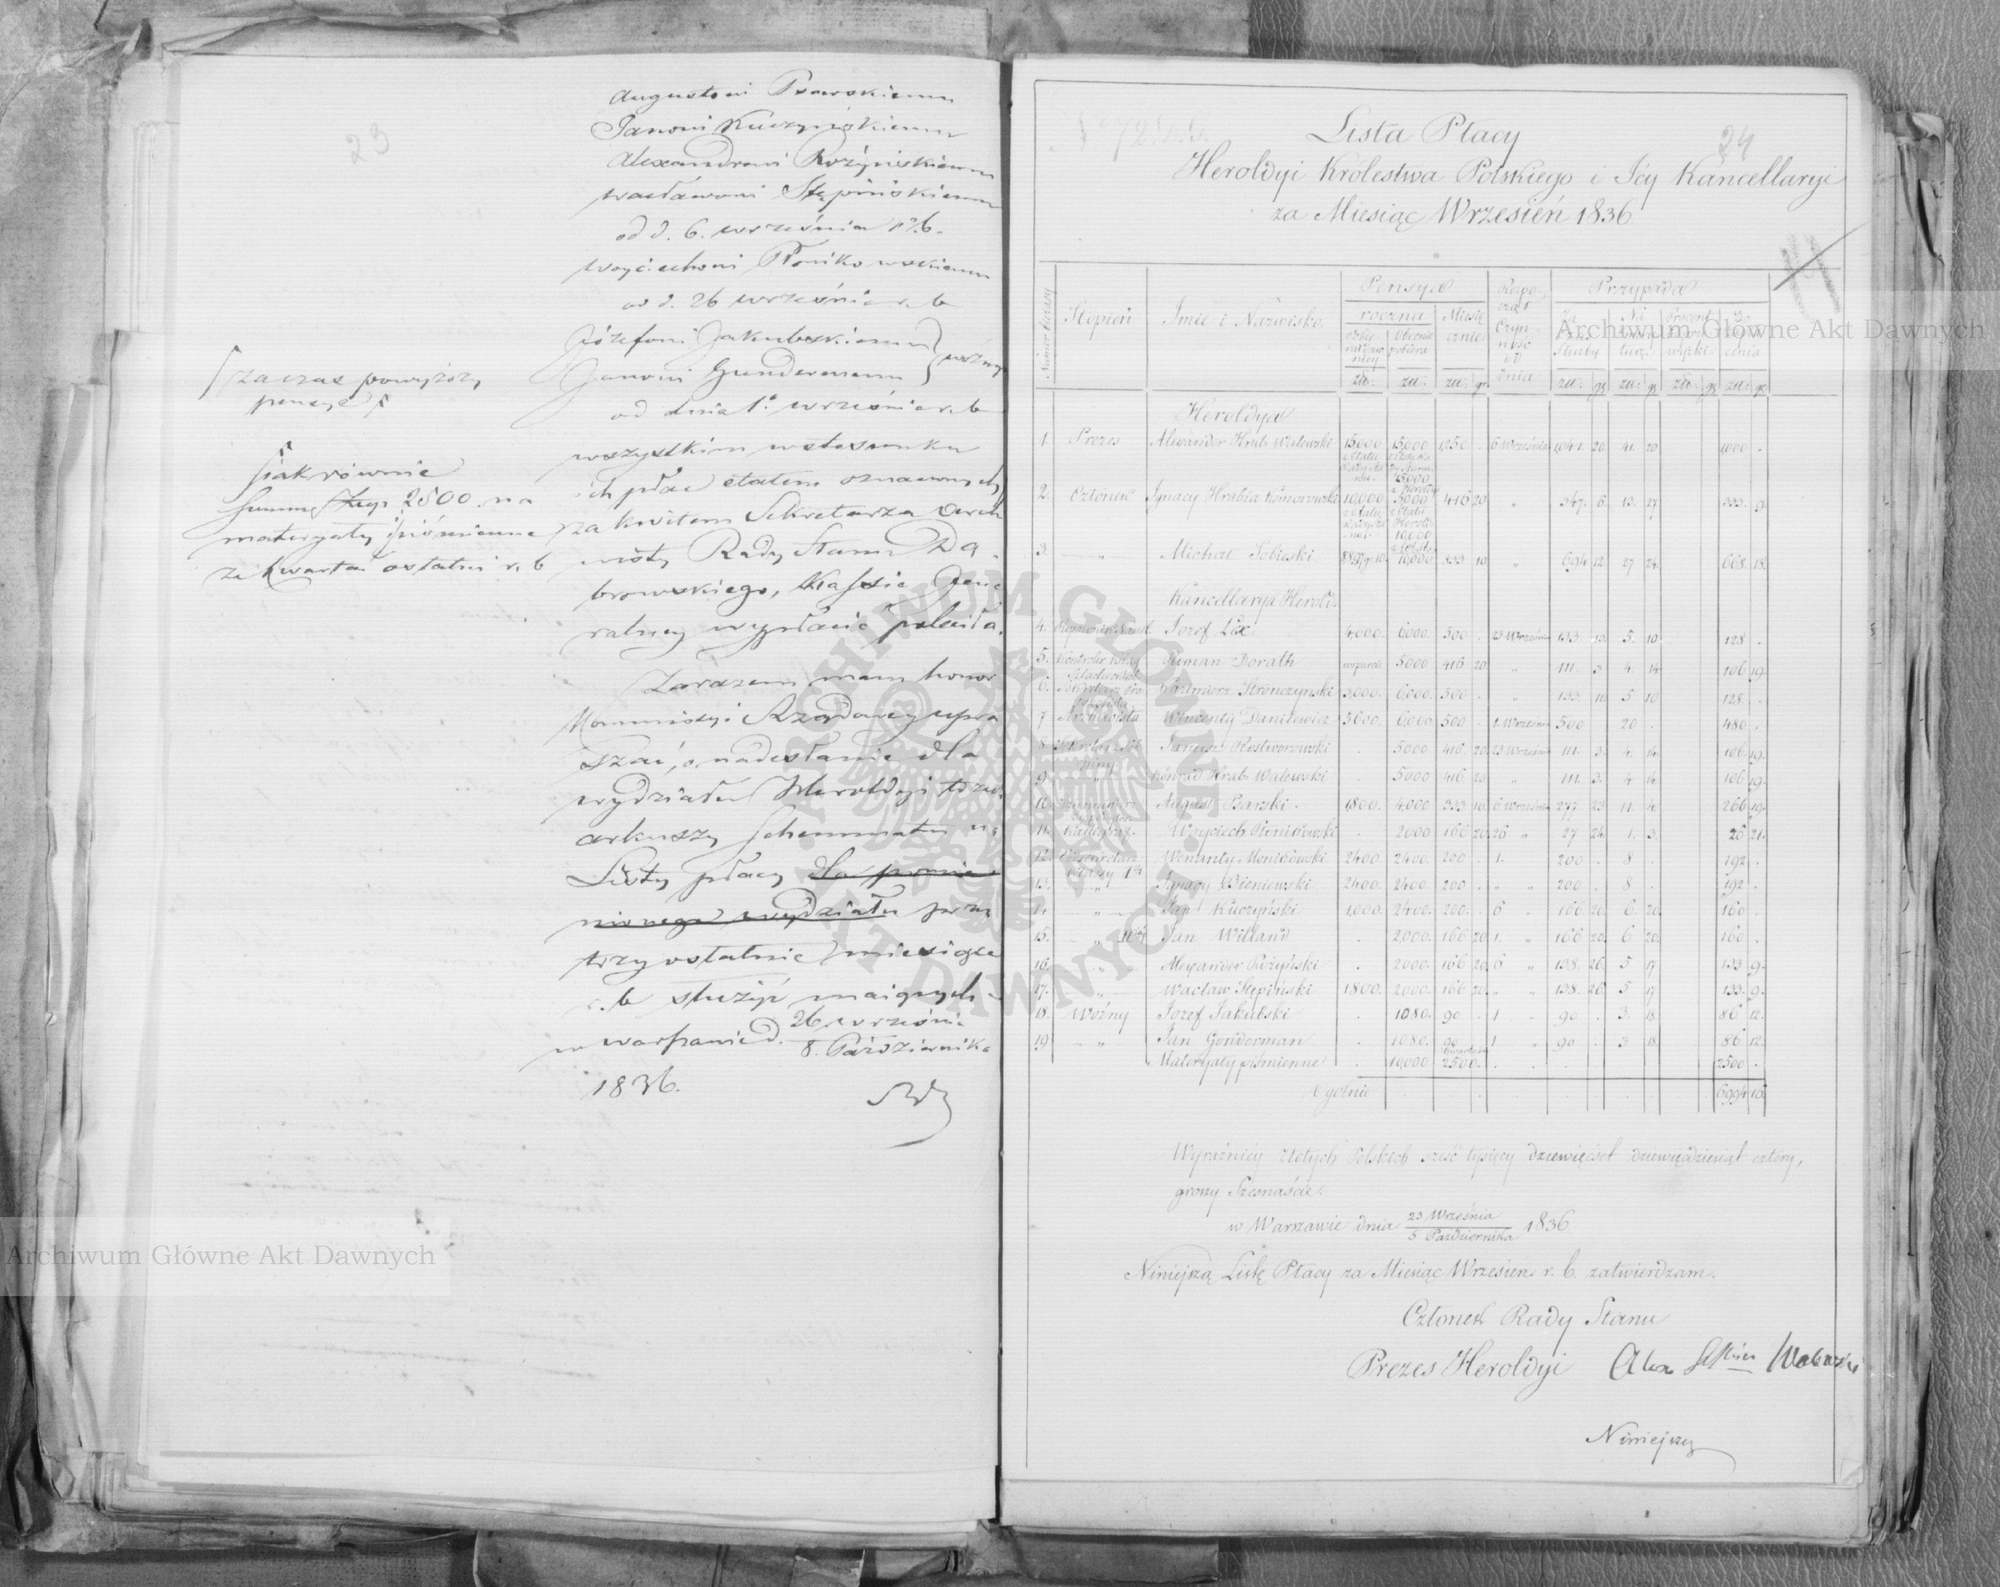 23
Augustowi
Janowi Kuczyńskiemu
Alexandrowi Rożyńskiemu
Wacławowi Stępińskiemu
od d. 6. września r. b.
Woyciechowi Płonikowskiemu
od d. 26 września r. b
Józefowi Jakubskiemu
Janowi Gundermanu
od dnia 1. września r. b
wszystkim w stosunku
ich płac etatem oznaczonych
za kwitem Sekretarza
Rady Stanu Dą-
browskiego, Kassie Jene
ralney wypłacić poleciła.
Zarazem mam honor
Kommissyi Rządowey upra
szać, o nadesłanie dla
wydziału Heroldyi
arkuszy Schemmatu na
Listy płacy dla pomie-
nionego wydziału przez
trzy ostatnie miesiące
r. b służyć maiących
w Warszawie d. 26 września
8. Października
1836.
za czas powyższy
pensye
iak równie
Summę Złp 2500 na
materyały piśmienne
za kwartał ostatni r. b
24
Lista Płacy
Heroldyi Królestwa Polskiego i Jéy Kancellaryi
za Miesiąc Wrzesień 1836
Stopień Imie i Nazwisko Pensya Przypada
roczna Miesię cznie
Obecnie pobiera
Służby
Zło: Zło: Zło: gr Dnia Zło: gr Zło: gr Zło: gr Zło: gr
Heroldya
1. Prezes Alexander Hrab. Walewski 15,000 15,000 1250 . 6 Września 1041. 20 41. 20 1000 .
2. Członek Ignacy Hrabia Komorowski 10,000 5000 416 20 " 347. 6. 13. 27 333. 9.
3. " Michał Sobieski 10,000 833 10 " 694 12. 27 24. 666. 18.
Kancellarya Herold:
4. Józef Lex 4000. 6000. 500 . 23 Września 133. 10. 5. 10 128 .
5. Kontroler Xiąg Szlacheckich Roman Dorath 5000 416 20 " 111. 3. 4. 14 106. 19.
6. Kazimierz Stronczyński 3000. 6000. 500 . " 133. 10 5 10 128. .
7. Archiwista Wincenty Danilewicz 3600. 6000 500 . 1. Września 500 20 480 .
8. Janusz Rostworowski . 5000 416. 20 23 Września 111. 3. 4. 14. 106. 19.
9. " Konrad Hrab. Walewski . 5000 416 20 " 111. 3. 4 14 106 19.
10. August Barski . 1800. 4,000 333 10. 6 Września 277 23 11. 4. 266. 19.
11. Woyciech Płonikowski . 2000 166 20 26 " 27 24. 1. 3. 26 21.
12. Klassy 1éy Wenanty Monikowski 2400 2400 200 . 1. 200 . 8 192 .
13. " Ignacy Bieniewski 2400. 2400. 200 . " 200 . 8. 192 .
14. " Jan Kuczyński 1,000. 2400. 200. . 6 166. 20. 6. 20. 160 .
15. " Jan Willand . 2000. 166 20. 1. " 166 20. 6 20. 160 .
16. " Alexander Rożyński . 2000. 166 20. 6 " 138. 26. 5 17 133 9.
17. " Wacław Stępiński 1800. 2000. 166 20. " 138. 26 5 17 133. 9.
18. Woźny Józef Jakubski . 1080. 90 . 1 90 . 3. 18. 86 12.
19 " Jan Gonderman . 1080. 90 . 1 90 . 3 18. 86 12.
Materyały piśmienne . 10,000 2500. 2500 .
Ogólnie . 6994 16.
Wyraźniéy Złotych Polskich sześć tysięcy dziewięćset dziewięćdziesiąt cztéry,
groszy Szesnaście.
w Warszawie dnia 23 Września
5 Października 1836.
Niniejszą Listę Płacy za Miesiąc Wrzesień r. b. zatwierdzam.
Członek Rady Stanu
Prezes Heroldyi Alex Walewski
Niniejszy
Archiwum Główne Akt Dawnych
Archiwum Główne Akt Dawnych
ARCHIWUM GŁÓWNE AKT DAWNYCH